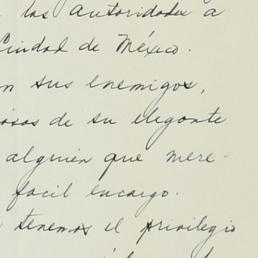 las autoridades a
Ciudad de México.
n sus enemigos,
osos de su elegante
alguien que mere-
facil encargo.
tenemos el privilegio